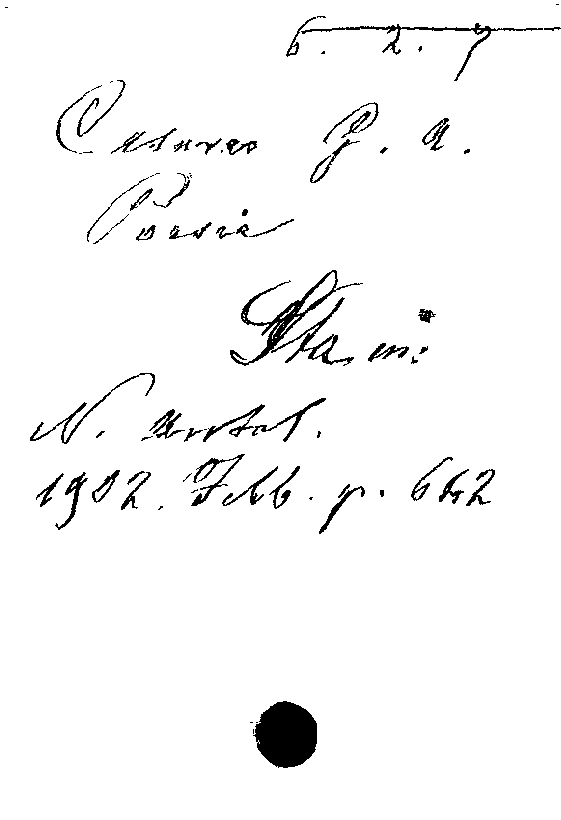 6. 2. 7
Cesareo G. A.
Poesie
N. Antol.
1902. Febb. p. 662